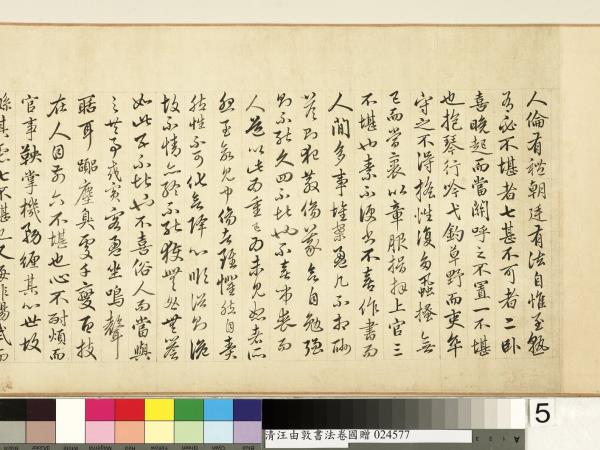 人倫有禮朝廷有法自惟至熟
有必不堪者七甚不可者二卧
喜晚起而當關呼之不置一不堪
也抱琴行吟弋釣草野而吏卒
守之不得搖性復多蝨搔無
已而當裹以章服揖拜上官三
不堪也素不便書不喜作書而
人間多事堆案盈几不相酬
答則犯教傷義欲自勉強
則不能久四不堪也不喜弔喪而
人道以此為重已為未見恕者所
怨至欲見中傷者雖懼然自責
然性不可化欲降心順俗則詭
故不情亦終不能獲無咎無譽
如此五不堪也不喜俗人而當與
之共事或賓客盈坐鳴聲
聒耳囂塵臭處千變百技
在人目前六不堪也心不耐煩而
官事鞅掌機務纏其心世故
繁其慮七不堪也又每非湯武而
清汪由敦書法卷國贈 024577
5